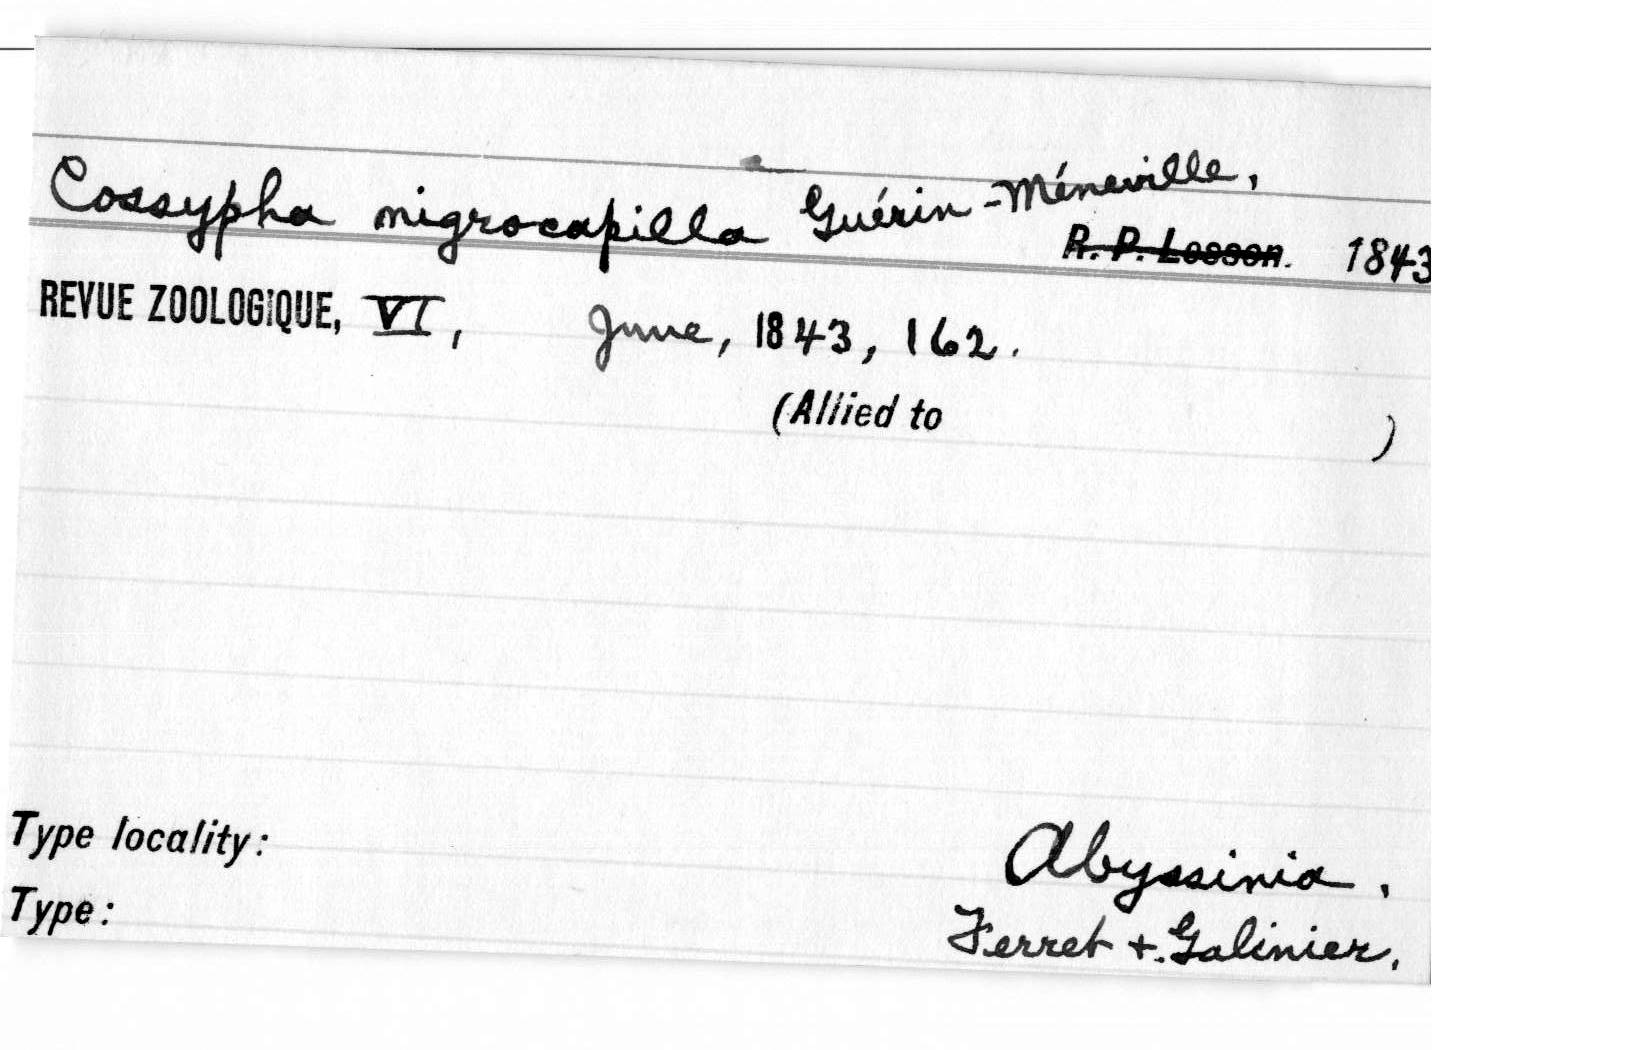 Cossypha nigrocapilla Guérin-Méneville,
R. P. Lesson. 1843
REVUE ZOOLOGIQUE, VI, June, 1843, 162.
(Allied to )
Type locality: Abyssinia.
Type: Ferret +. Galinier.